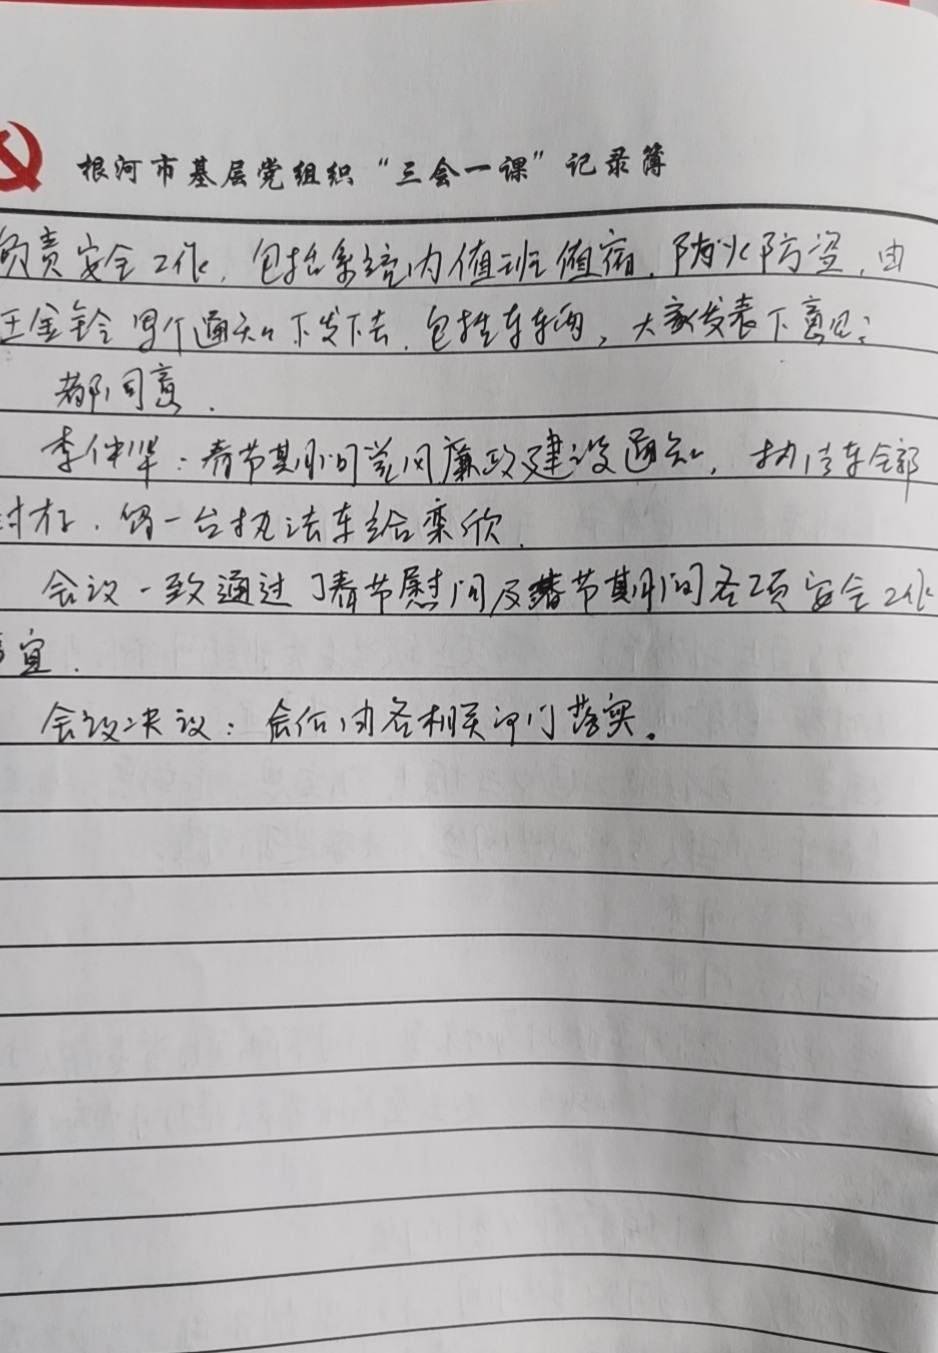 根河市基层党组织“三会一课”记录簿
负责安全工作，包括系统内值班值宿，防火防盗，由
王金铃写个通知下发下去，包括车辆，大家发表下意见：
都同意．
李仲华：春节期间党风廉政建设通知，执法车全部
封存，留一台执法车给栾欣．
会议一致通过了春节慰问及春节期间各项安全工作
事宜．
会议决议：会后由各相关部门落实。